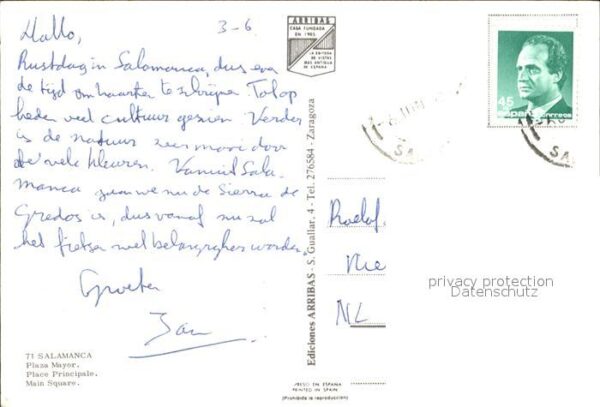 Hallo, 3-6
Rustdag in Salamanca, dus even
de tijd om kaarten te schrijven. Tal op
heden veel cultuur gezien. Verder
is de natuur zeer mooi door
de vele kleuren. Vanuit Sala
manca gaan we nu de Sierra de
Gredos in, dus vanaf nu zal
het fietsen wel belangrijker worden.
Groeten
Jan
ARRIBAS
CASA FUNDADA
EN 1905
LA EDITORA
DE VISTAS
MAS ANTIGUA
DE ESPAÑA
45
España correos
JUN
SA
Ediciones ARRIBAS - S. Guallar, 4 - Tel. 276584 - Zaragoza
Roelof
NL
privacy protection
Datenschutz
71 SALAMANCA
Plaza Mayor.
Place Principale.
Main Square.
IMPRESO EN ESPAÑA
PRINTED IN SPAIN
(Prohibida la reproducción)